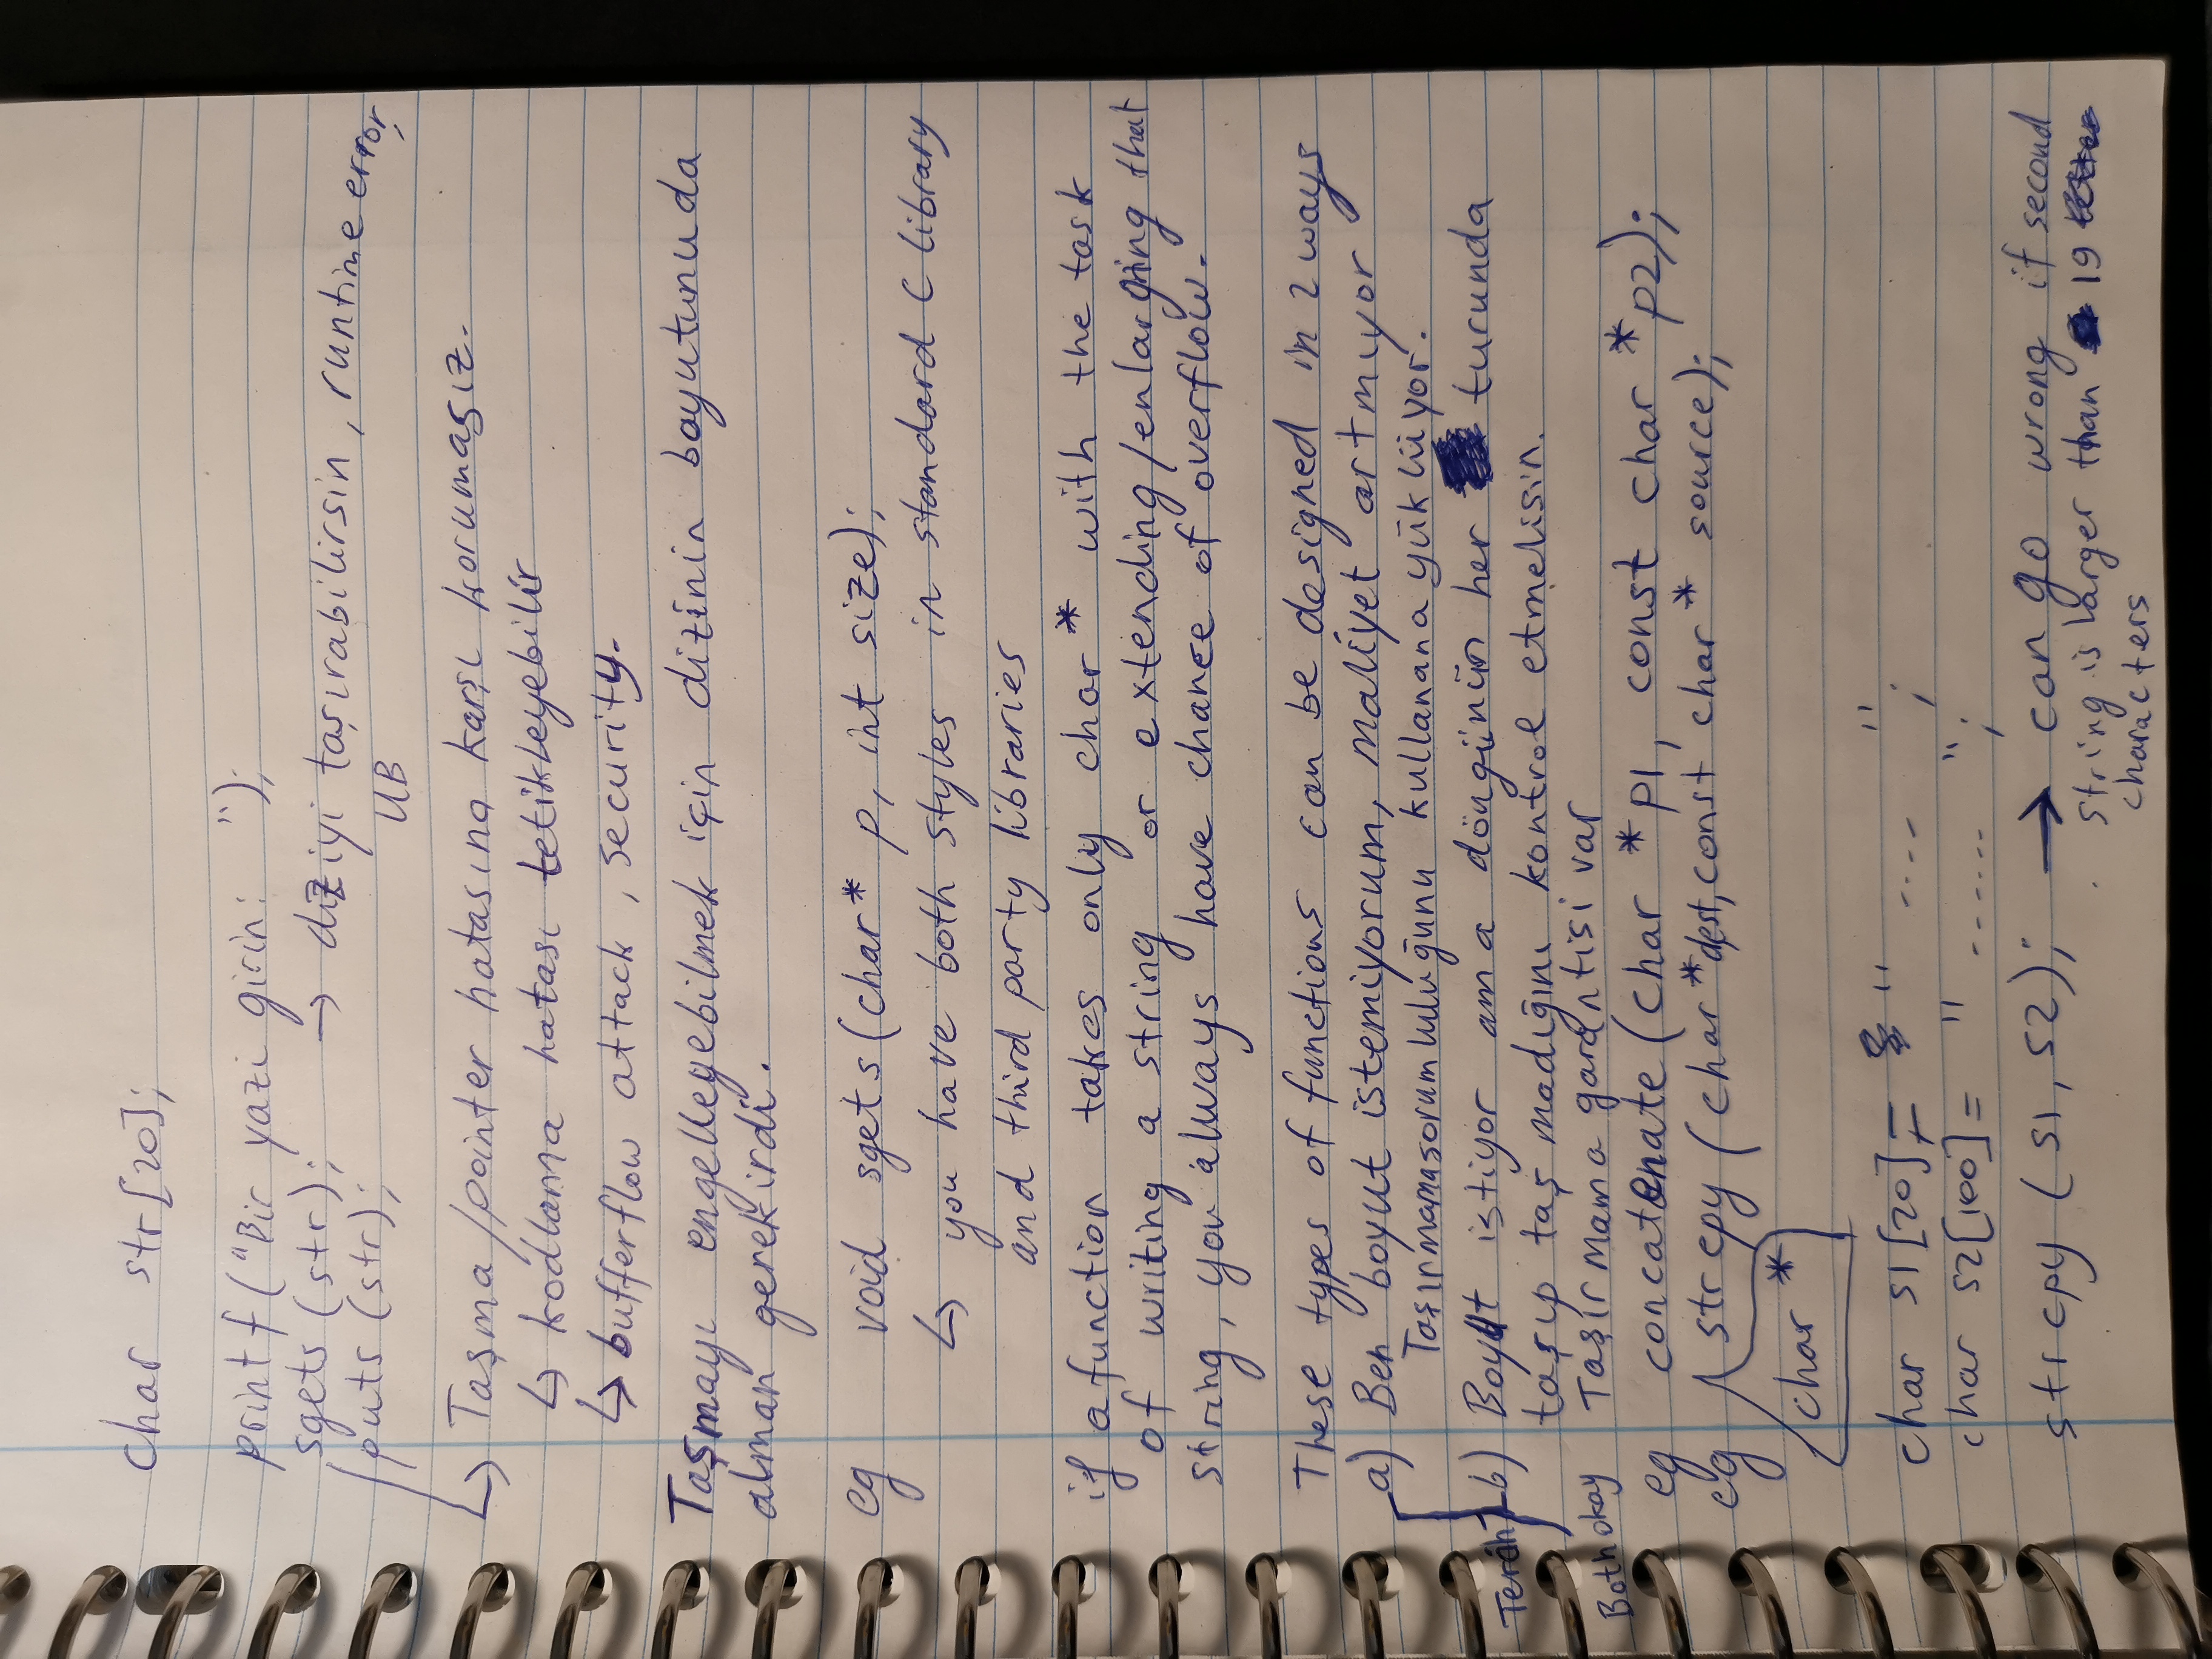 char str[20];
printf("Bir yazi girin: ");
sgets(str); → diziyi taşırabilirsin, runtime error,
puts(str); UB
↳ Taşma/pointer hatasına karşı korumasız.
↳ kodlama hatası tetikleyebilir
↳ bufferflow attack, security.
Taşmayı engelleyebilmek için dizinin boyutunu da
alman gerekirdi.
eg void sgets(char* p, int size);
↳ you have both styles in standard C library
and third party libraries
if a function takes only char* with the task
of writing a string or extending/enlarging that
string, you always have chance of overflow.
These types of functions can be designed in 2 ways
a) Ben boyut istemiyorum, maliyet artmıyor
Taşırmama sorumluluğunu kullanana yüklüyor.
Tercih b) Boyut istiyor ama döngünün her turunda
taşıp taşmadığını kontrol etmelisin.
Both okay Taşırmama garantisi var
eg concatenate(char *p1, const char *p2);
eg strcpy(char *dest, const char* source);
char *
char s1[20]= " .... ";
char s2[100]= " ...... ";
strcpy(s1, s2); → can go wrong if second
string is larger than 19
characters